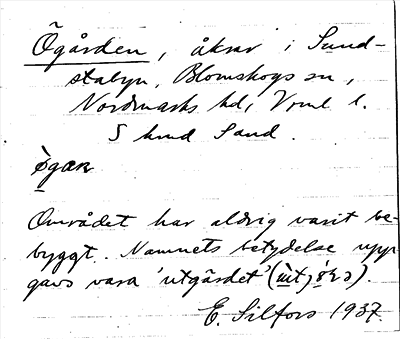 Ögården, åkrar i Sund-
stabyn, Blomskogs sn,
Nordmarks hd, Vrml l.
S hmd Sand.
Området har aldrig varit be-
byggt. Namnets betydelse upp-
gavs vara 'utgärdet'
E. Silfors 1937.